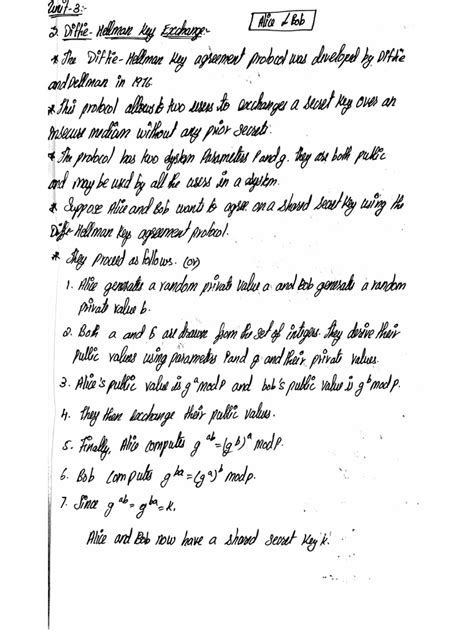 Unit-3:-
2. Diffie-Hellman Key Exchange:-
Alice & Bob
* The Diffie-Hellman Key agreement protocol was developed by Diffie
and Dellman in 1976
* This protocol allows to two users to exchanges a secret key over an
insecure medium without any prior secrets.
* The protocol has two system Parameters P and g. They are both public
and may be used by all the users in a system.
* Suppose Alice and Bob wants to agree on a shared secret key using the
Diffie-Hellman Key agreement protocol.
* They Proceed as follows. (or)
1. Alice generate a random private value a and Bob generate a random
private value b.
2. Both a and b are drawn from the set of integers. They derive their
public values using parameters P and g and their private values.
3. Alice's public value is g^a mod p and bob's public value is g^b mod p.
4. They then exchange their public values.
5. Finally, Alice computes g^ab = (g^b)^a mod p.
6. Bob computes g^ba = (g^a)^b mod p.
7. Since g^ab = g^ba = k.
Alice and Bob now have a shared secret key k.